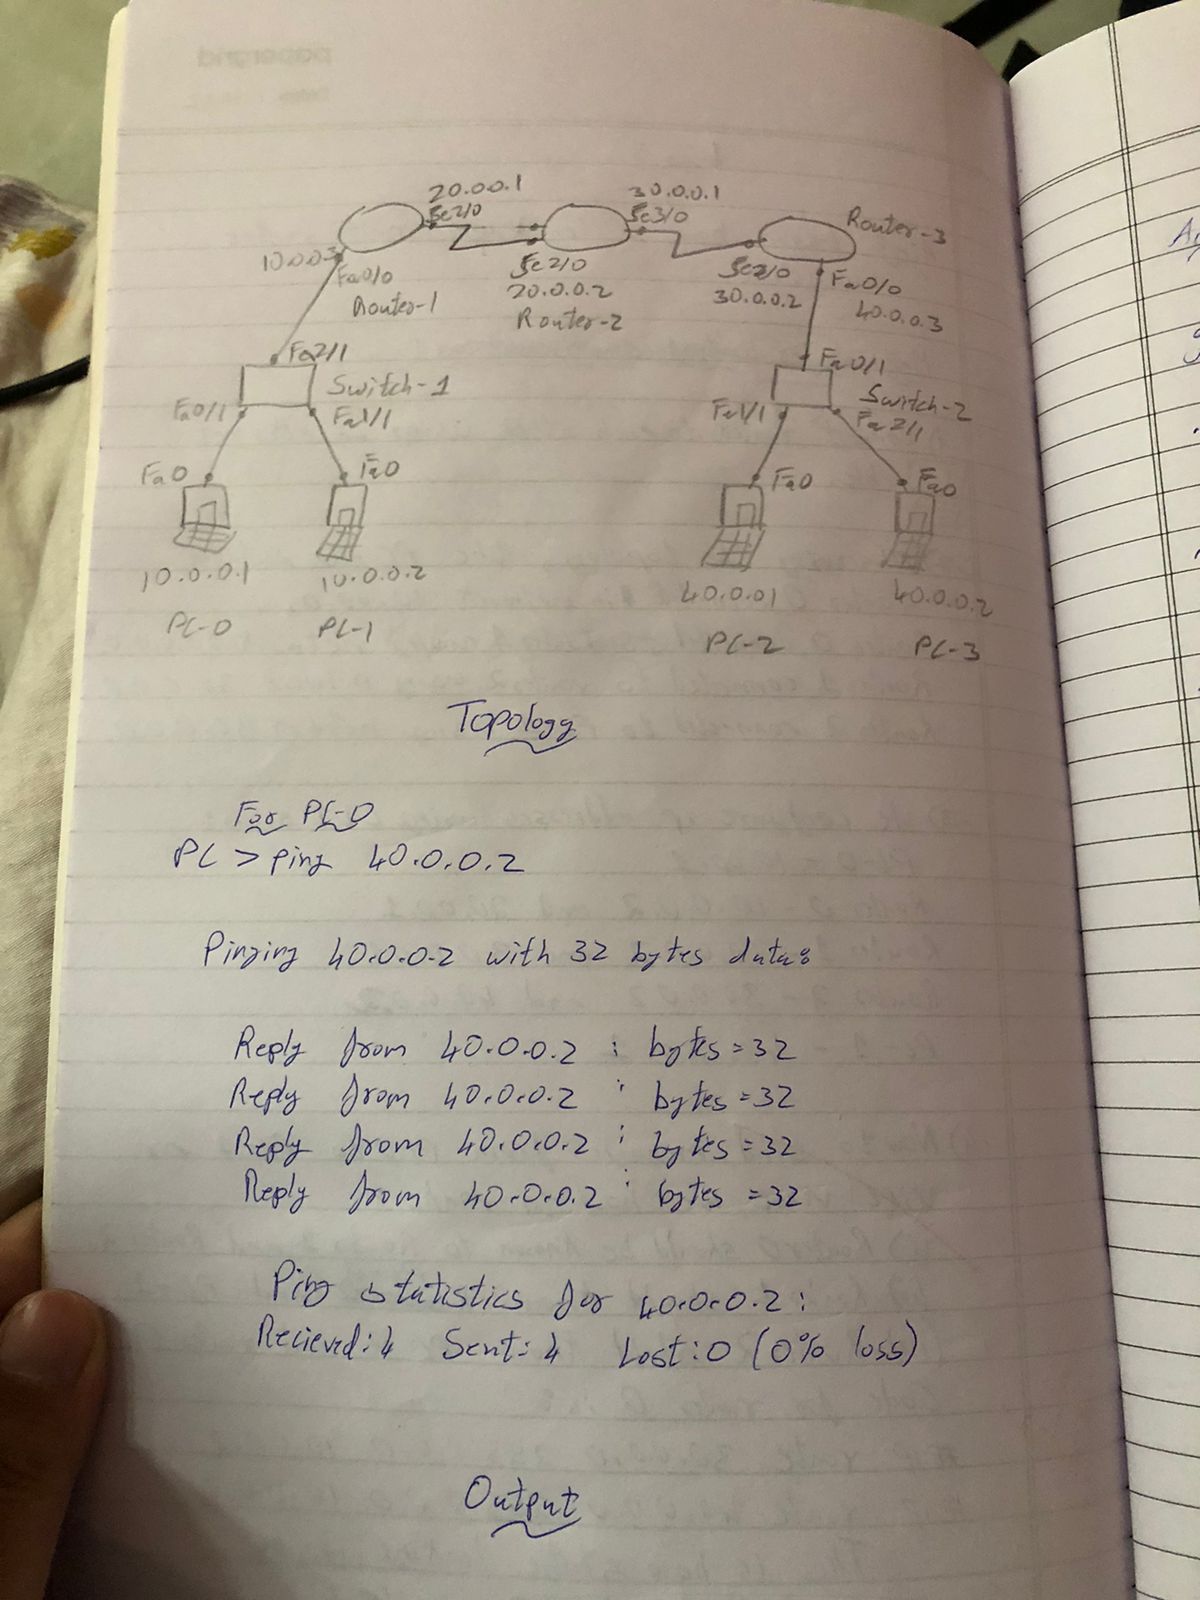 20.0.0.1
30.0.0.1
Se2/0
Se3/0
Router-3
10.0.0.3
Fa0/0
Se2/0
Se2/0
Fa0/0
Router-1
20.0.0.2
30.0.0.2
40.0.0.3
Router-2
Fa2/1
Fa0/1
Switch-1
Switch-2
Fa0/1
Fa1/1
Fa1/1
Fa2/1
Fa0
Fa0
Fa0
Fa0
10.0.0.1
10.0.0.2
40.0.01
40.0.0.2
PC-0
PC-1
PC-2
PC-3
Topology
For PC-0
PC > ping 40.0.0.2
Pinging 40.0.0.2 with 32 bytes data:
Reply from 40.0.0.2 : bytes = 32
Reply from 40.0.0.2 : bytes = 32
Reply from 40.0.0.2 : bytes = 32
Reply from 40.0.0.2 : bytes = 32
Ping statistics for 40.0.0.2 :
Recieved: 4 Sent: 4 Lost: 0 (0% loss)
Output